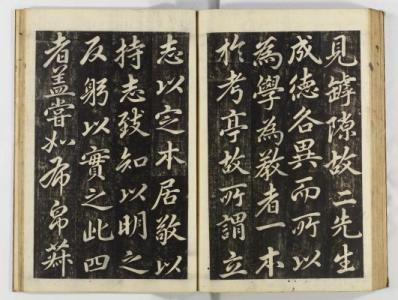 見罅隙故二先生
成德各異而所以
為學為教者一本
於考亭故所謂立
志以定本居敬以
持志致知以明之
反躬以實之此四
者蓋嘗如布帛菽